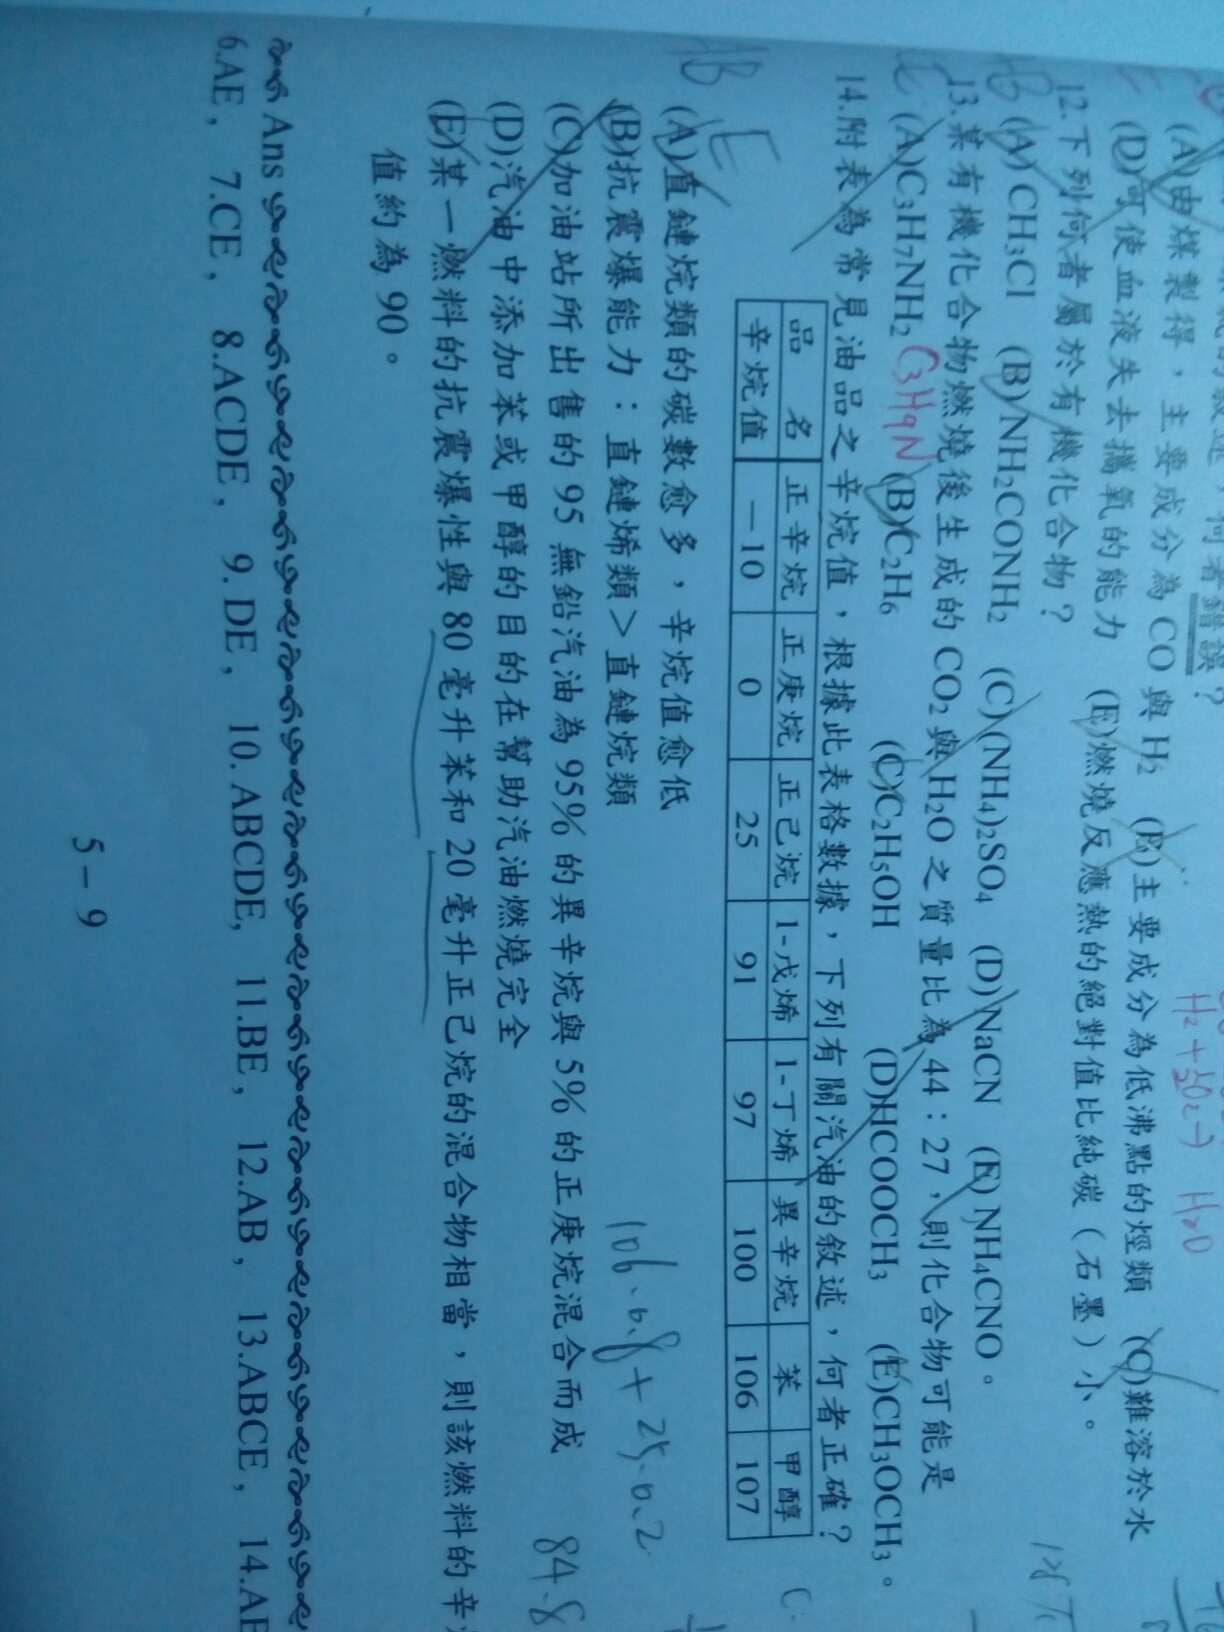 何者錯誤？
(A)由煤製得，主要成分為 CO 與 H2 (B)主要成分為低沸點的烴類 (C)難溶於水
H2 + 5O2 → H2O
(D)可使血液失去攜氧的能力 (E)燃燒反應熱的絕對值比純碳（石墨）小。
12.下列何者屬於有機化合物？
AB (A) CH3Cl (B) NH2CONH2 (C) (NH4)2SO4 (D) NaCN (E) NH4CNO。
13.某有機化合物燃燒後生成的 CO2 與 H2O 之質量比為 44：27，則化合物可能是
(A)C3H7NH2 C3H9N (B)C2H6 (C)C2H5OH (D)HCOOCH3 (E)CH3OCH3。
14.附表為常見油品之辛烷值，根據此表格數據，下列有關汽油的敘述，何者正確？
品名 正辛烷 正庚烷 正己烷 1-戊烯 1-丁烯 異辛烷 苯 甲醇
辛烷值 －10 0 25 91 97 100 106 107
E
AB (A)直鏈烷類的碳數愈多，辛烷值愈低
(B)抗震爆能力：直鏈烯類＞直鏈烷類
106．0.8 + 25．0.2
(C)加油站所出售的 95 無鉛汽油為 95% 的異辛烷與 5% 的正庚烷混合而成
84.8
(D)汽油中添加苯或甲醇的目的在幫助汽油燃燒完全
(E)某一燃料的抗震爆性與 80 毫升苯和 20 毫升正己烷的混合物相當，則該燃料的辛
值約為 90。
Ans
6.AE， 7.CE， 8.ACDE， 9.DE， 10.ABCDE， 11.BE， 12.AB， 13.ABCE， 14.AB
5－9